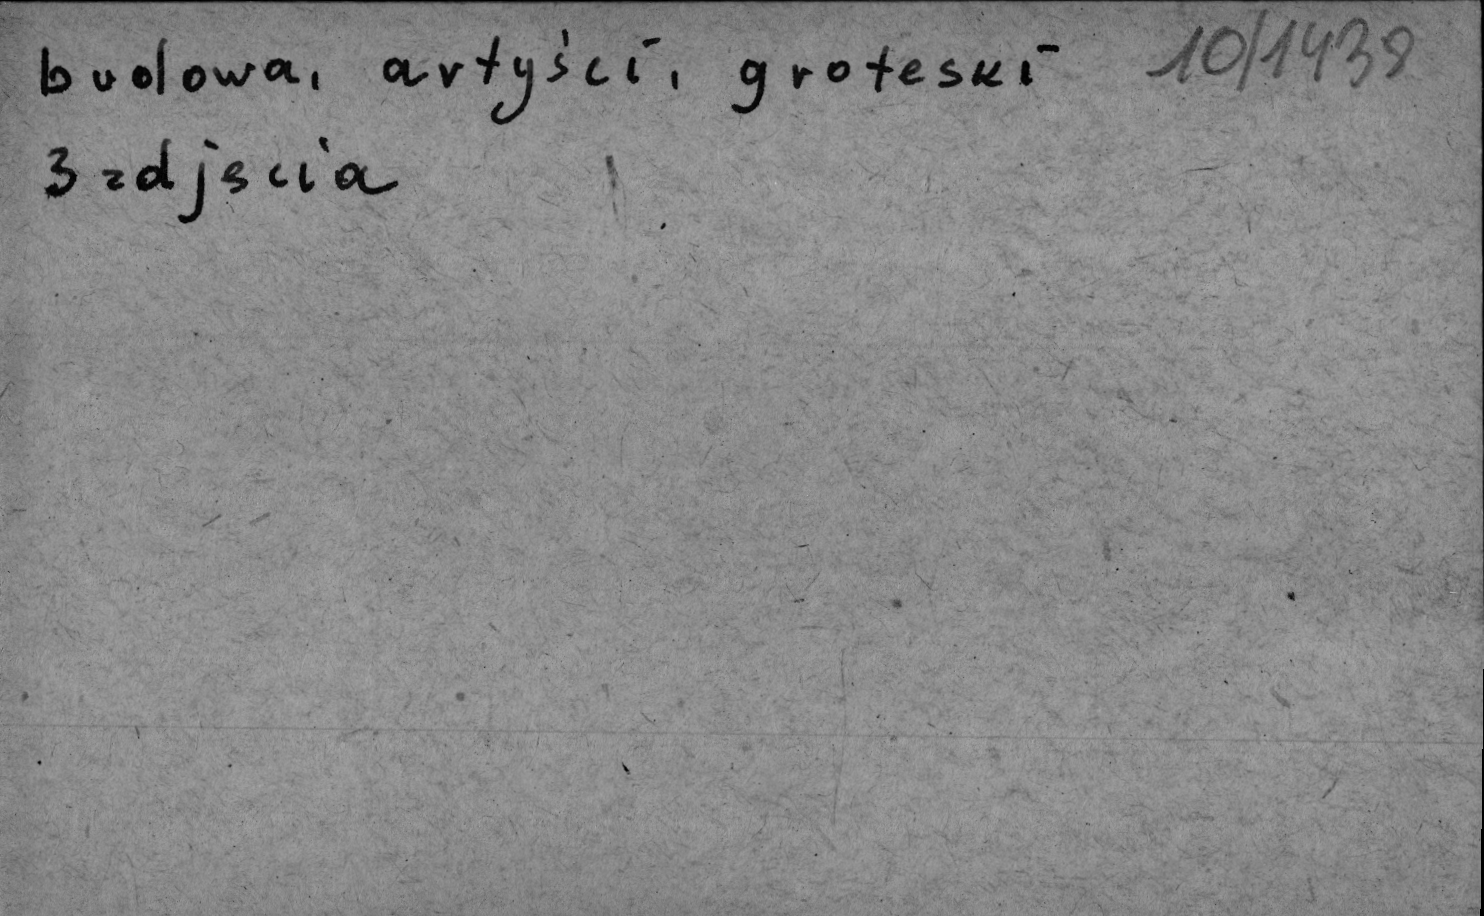 budowa, artyści, groteski 10/1438
3 zdjscia